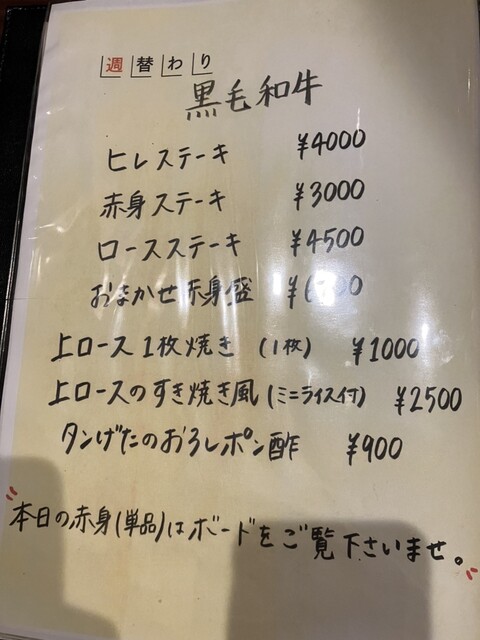 週替わり
黒毛和牛
ヒレステーキ ¥4000
赤身ステーキ ¥3000
ロースステーキ ¥4500
おまかせ赤身盛
上ロース1枚焼き (1枚) ¥1000
上ロースのすき焼き風(ミニライス付) ¥2500
タンげたのおろしポン酢 ¥900
"本日の赤身(単品)はボードをご覧下さいませ。"